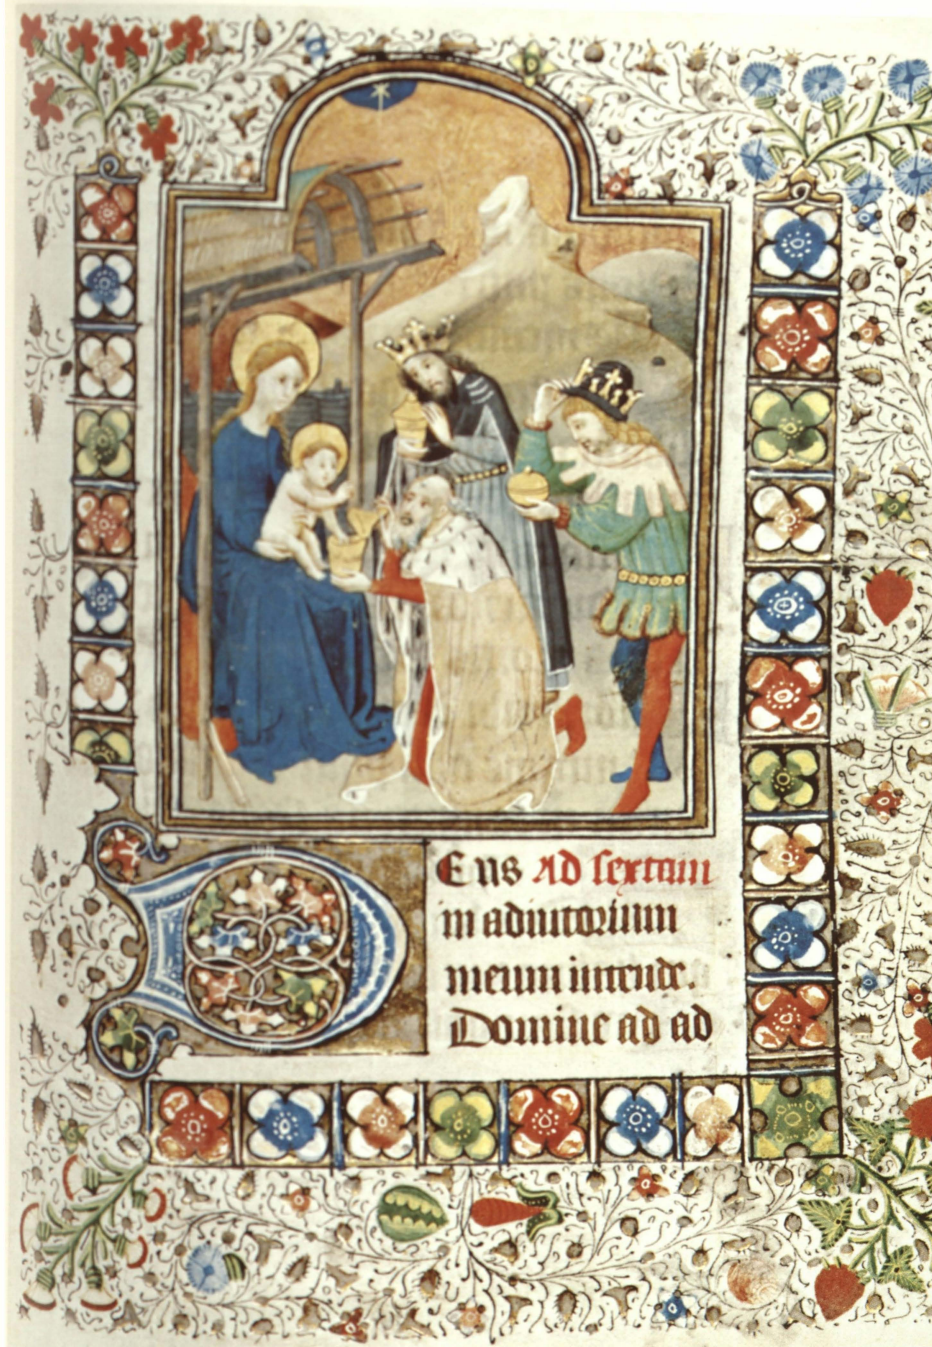 Deus Ad sextam
in adiutorium
meum intende.
Domine ad ad